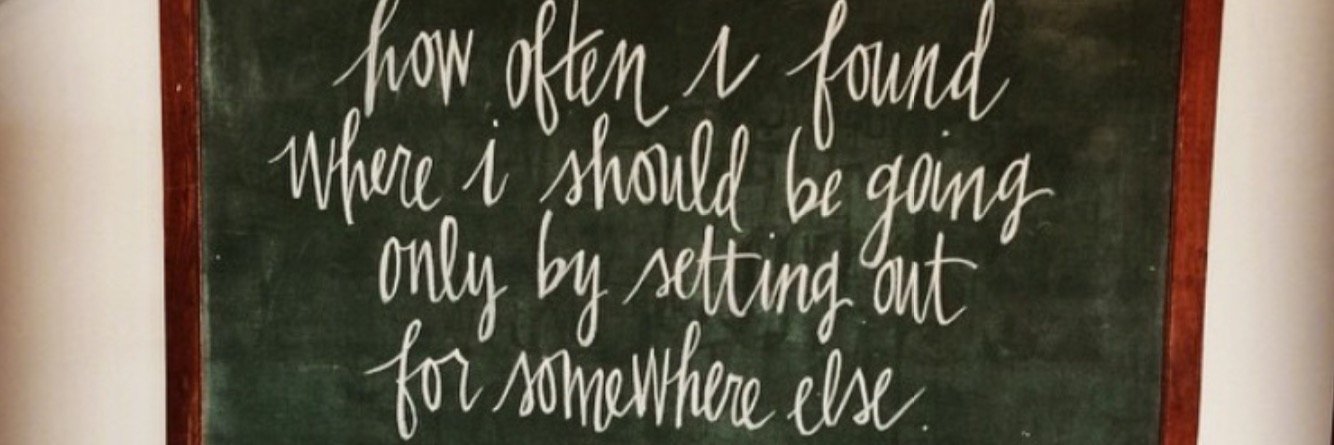 how often i found
where i should be going
only by setting out
for somewhere else.